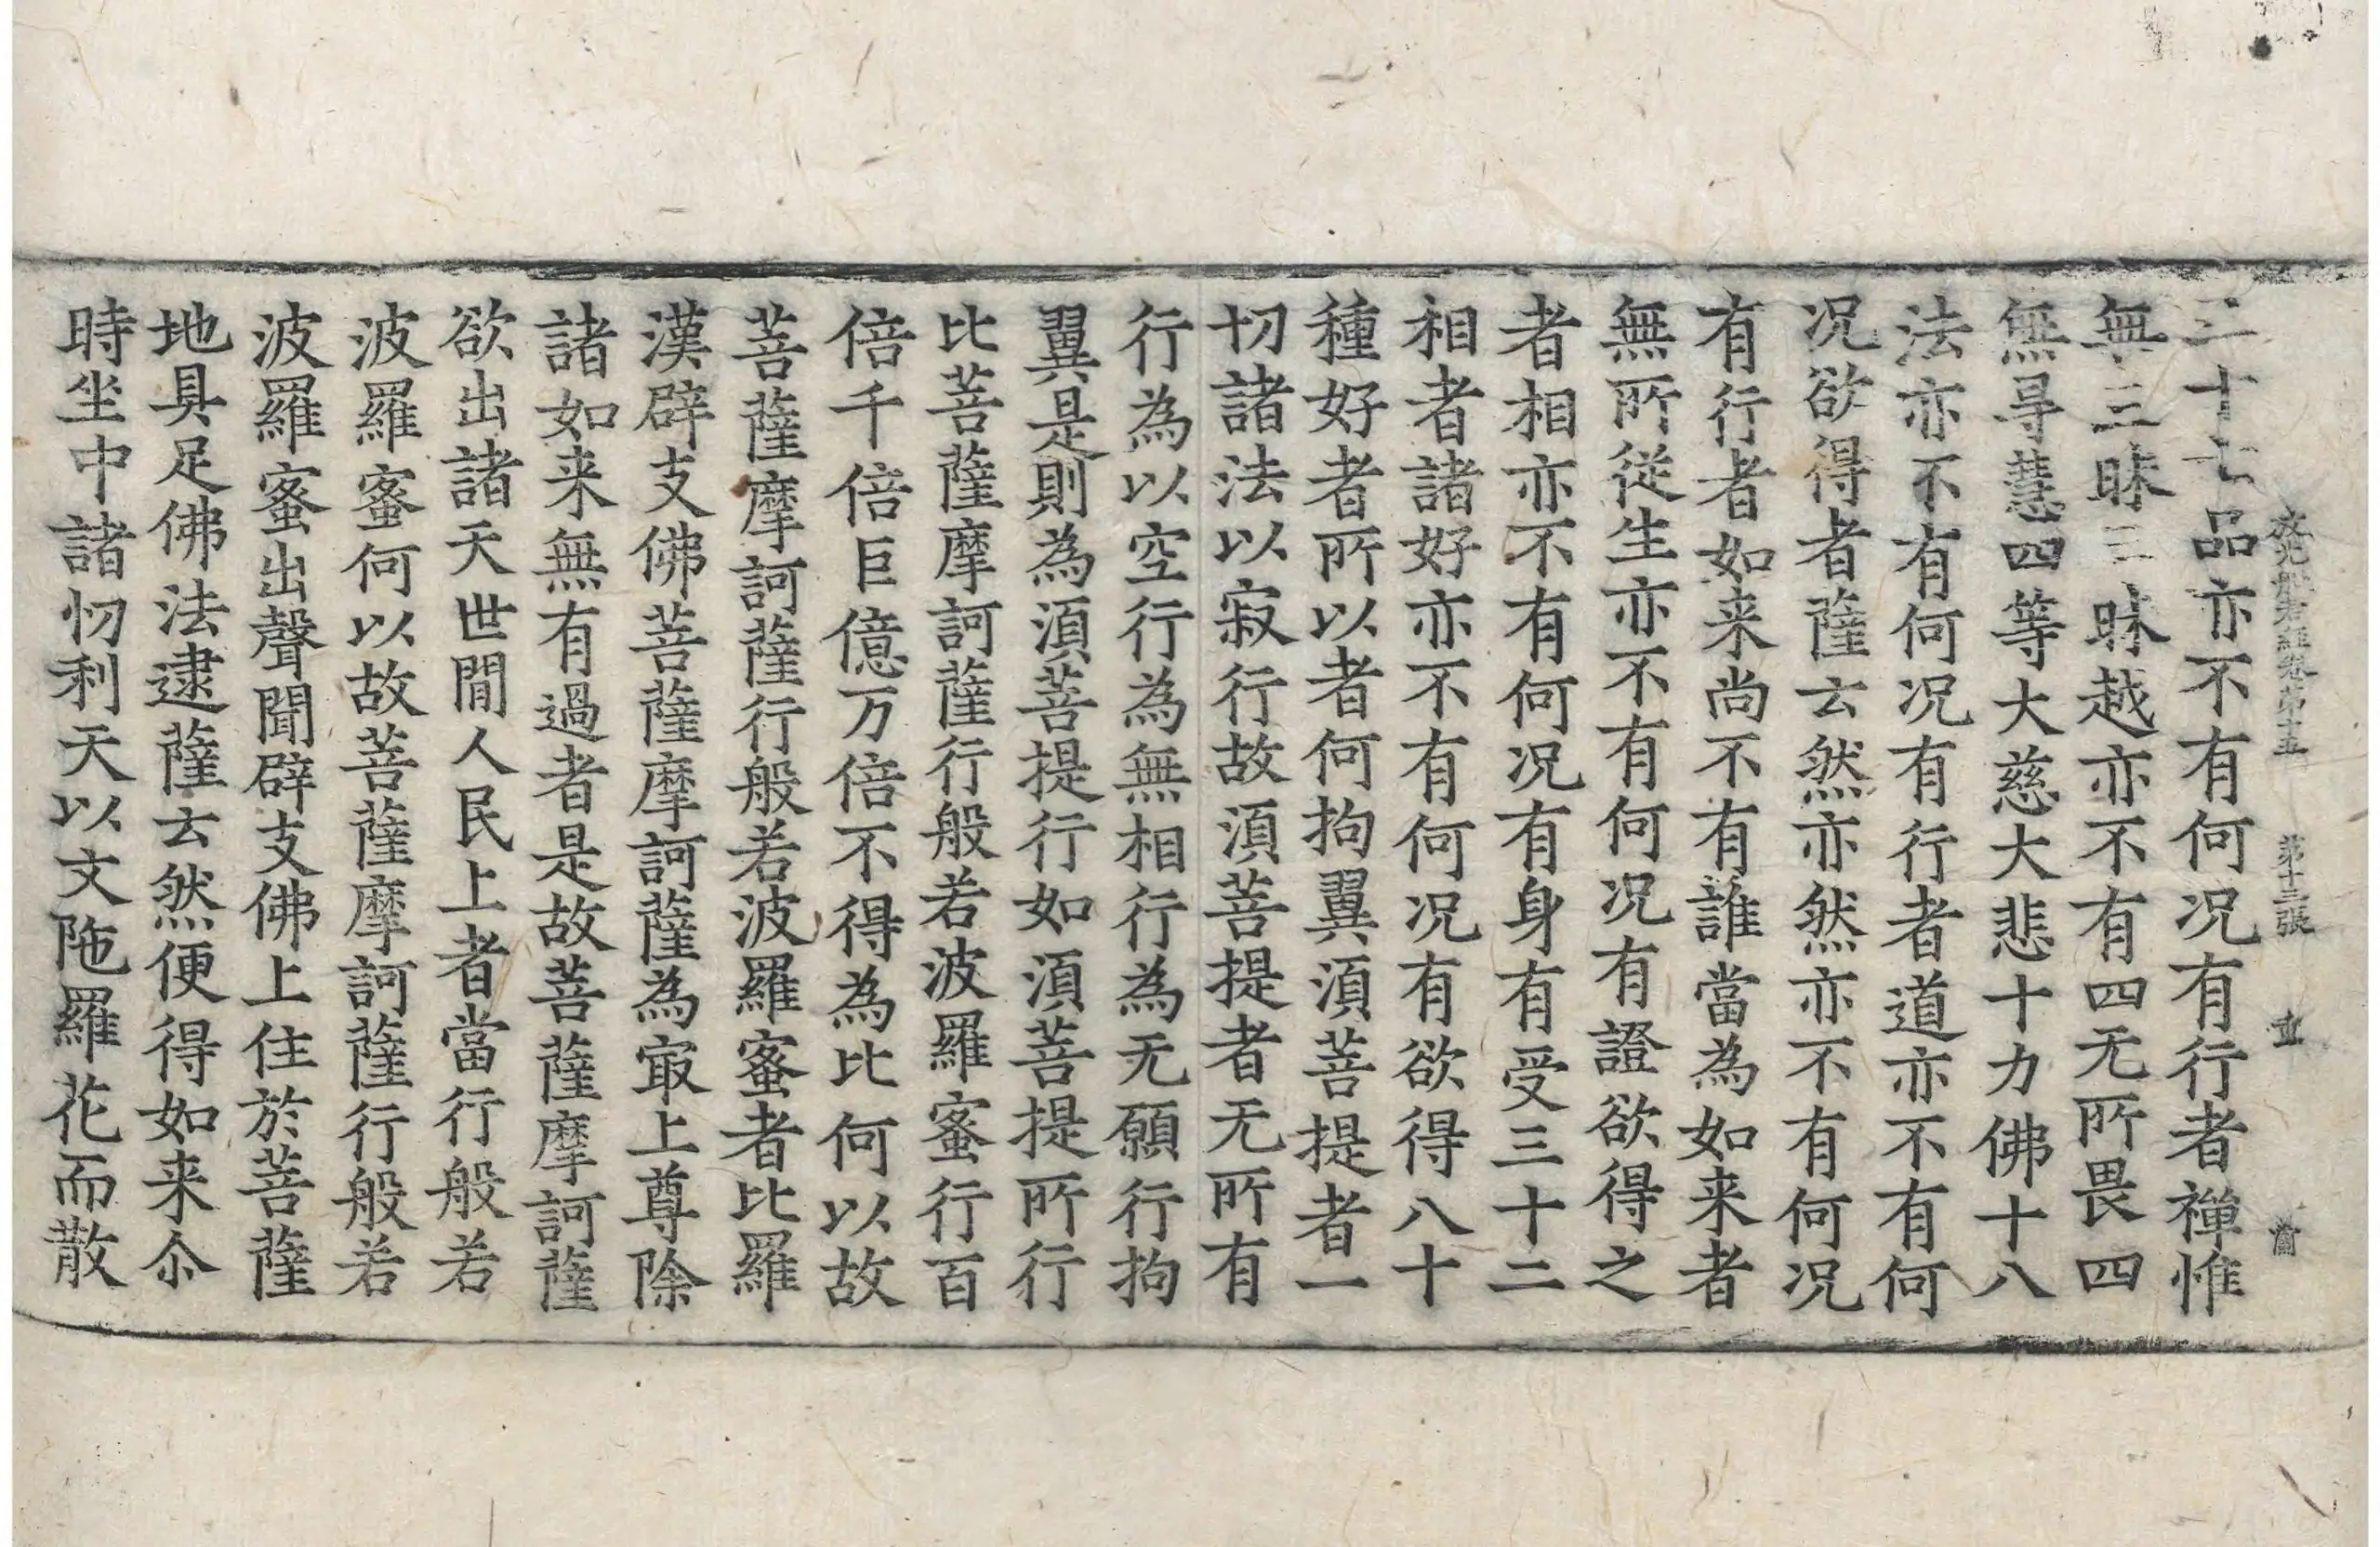 放光般若經卷第十五 第十三張 重
三十七品亦不有何况有行者禪惟
無三昧三昧越亦不有四无所畏四
無㝵慧四等大慈大悲十力佛十八
法亦不有何况有行者道亦不有何
况欲得者薩云然亦然亦不有何况
有行者如来尚不有誰當為如来者
無所從生亦不有何况有證欲得之
者相亦不有何况有身有受三十二
相者諸好亦不有何况有欲得八十
種好者所以者何拘翼湏菩提者一
切諸法以寂行故湏菩提者无所有
行為以空行為無相行為无願行拘
翼是則為湏菩提行如湏菩提所行
比菩薩摩訶薩行般若波羅蜜行百
倍千倍巨億万倍不得為比何以故
菩薩摩訶薩行般若波羅蜜者比羅
漢辟支佛菩薩摩訶薩為㝡上尊除
諸如来無有過者是故菩薩摩訶薩
欲出諸天世間人民上者當行般若
波羅蜜何以故菩薩摩訶薩行般若
波羅蜜出聲聞辟支佛上住於菩薩
地具足佛法逮薩云然便得如来尒
時坐中諸忉利天以文陁羅花而散